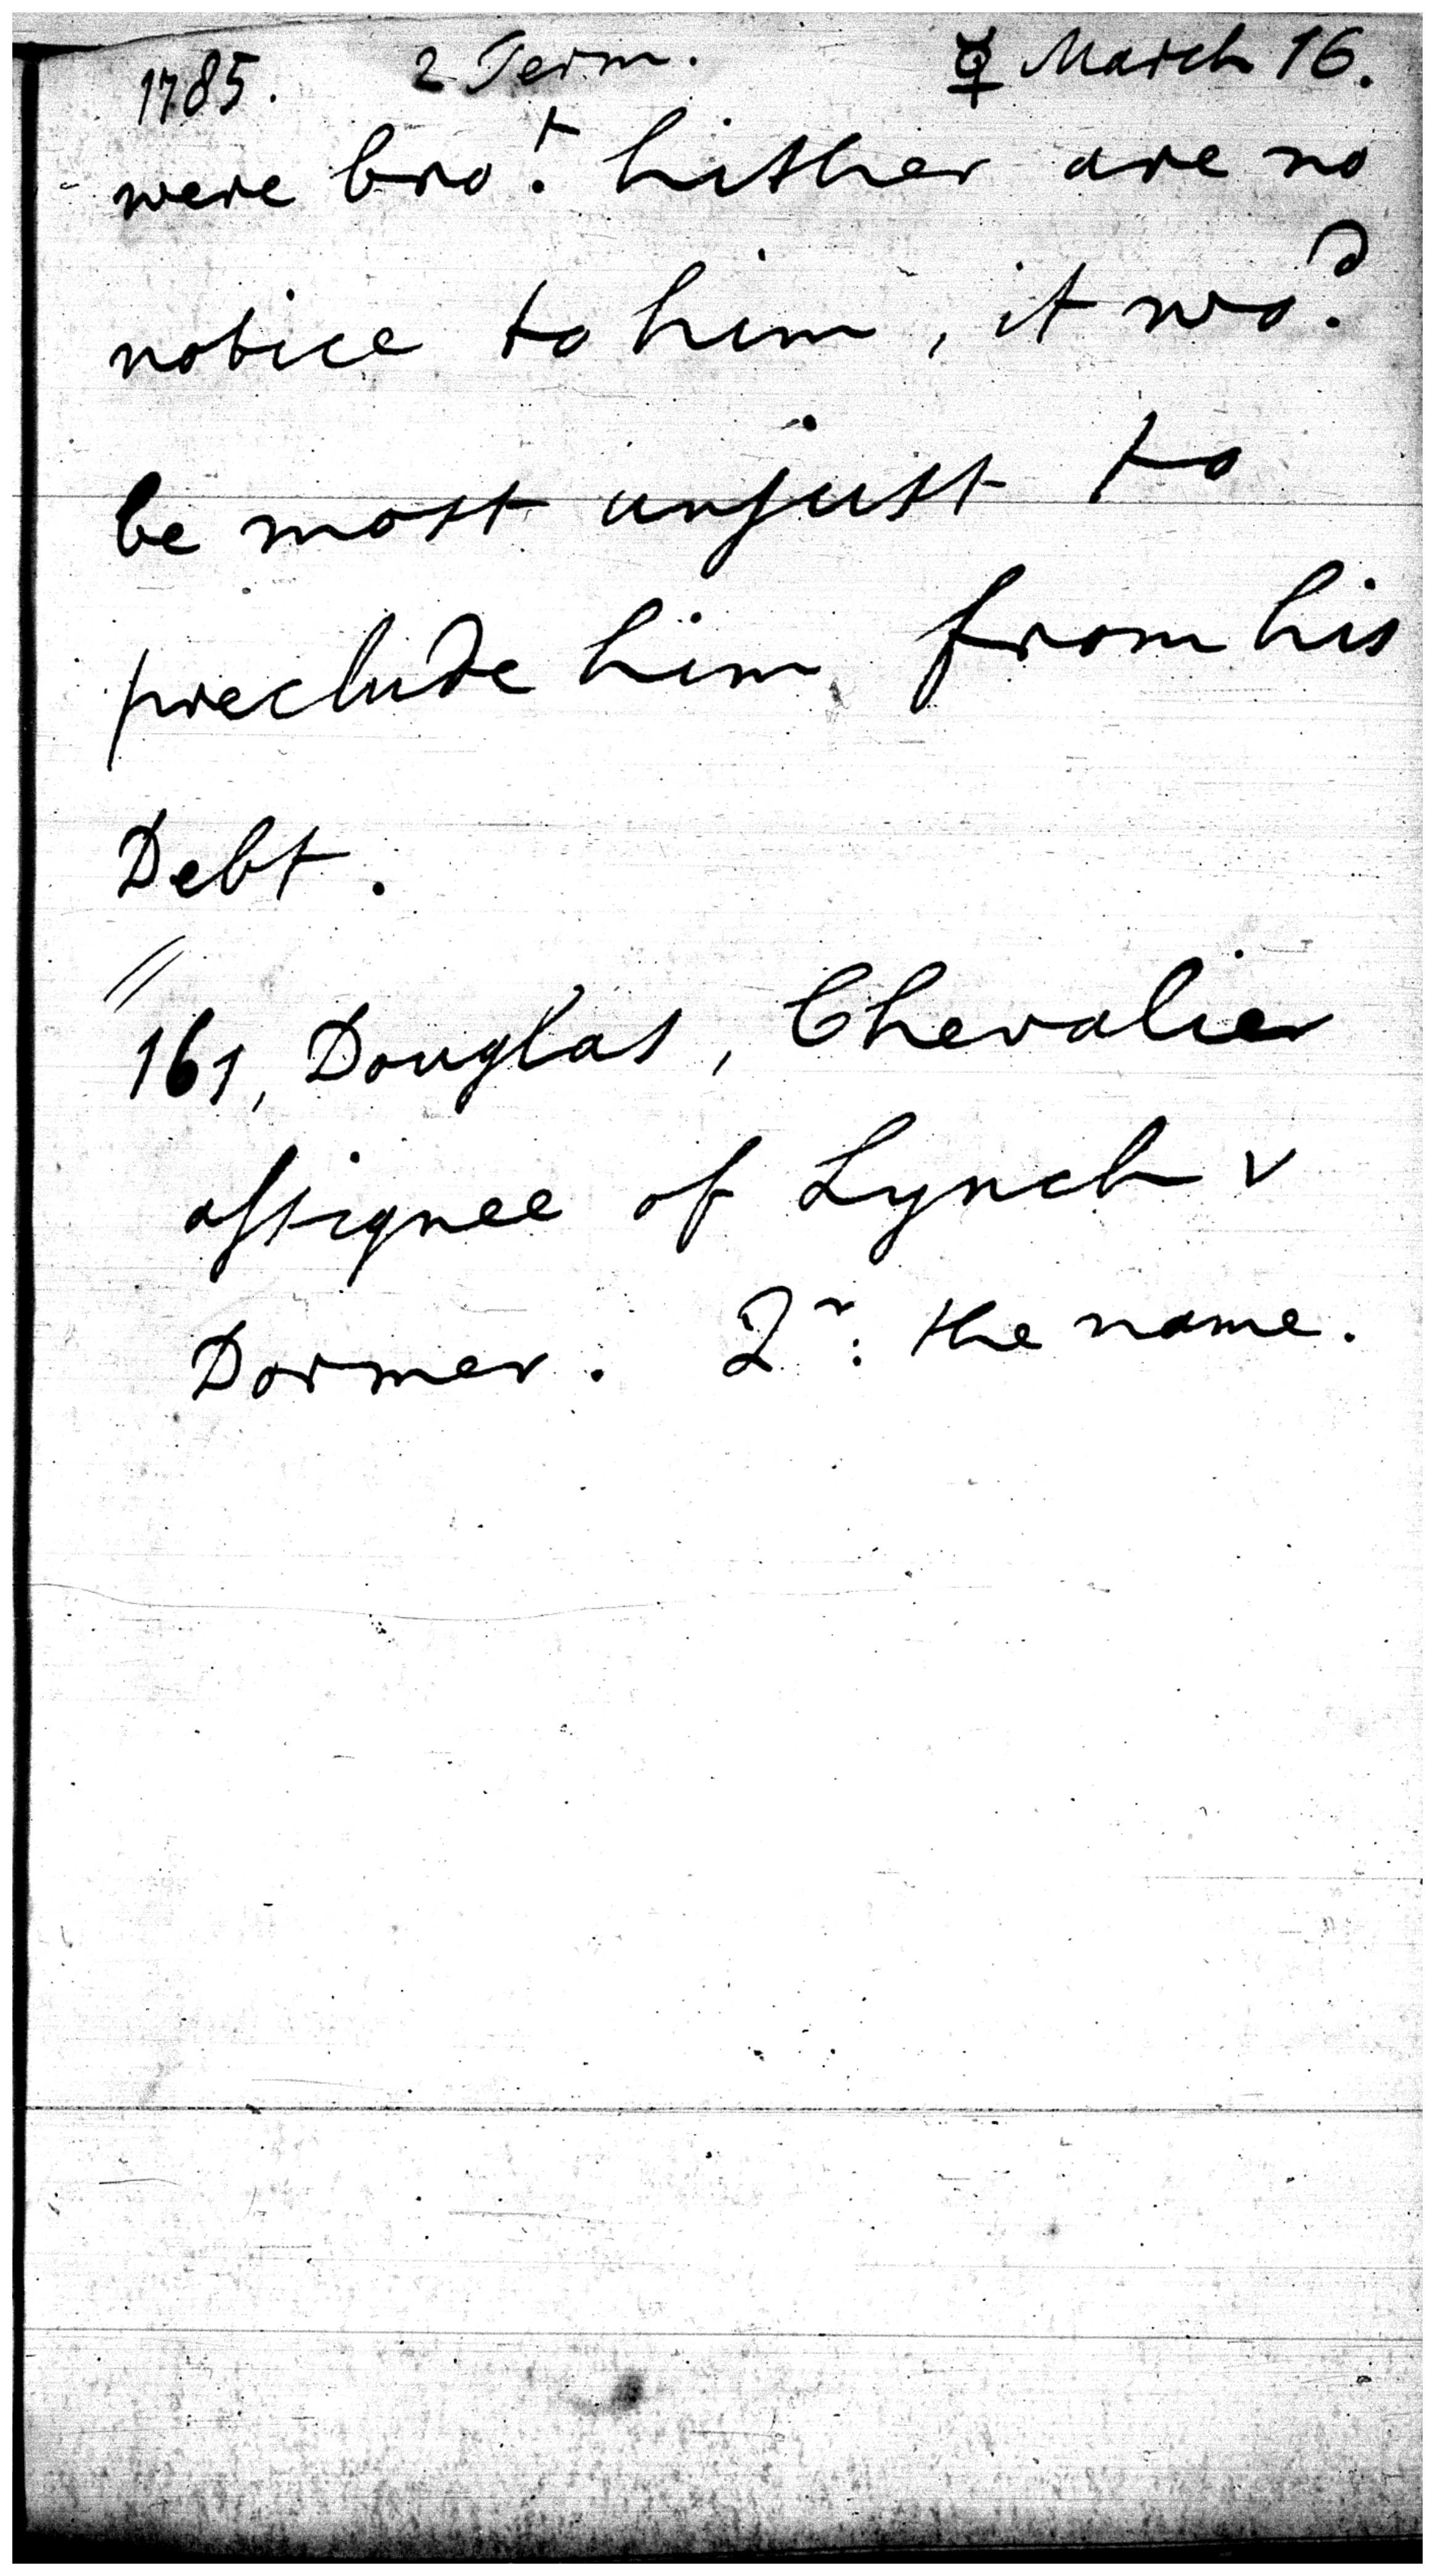 1785. 2 Term. ☿ March 16.
were bro.t hither are no
notice to him, it wo.d
be most unjust to
preclude him from his
Debt.
//
161, Douglas, Chevalier
assignee of Lynch v
Dormer. Qr: the name.